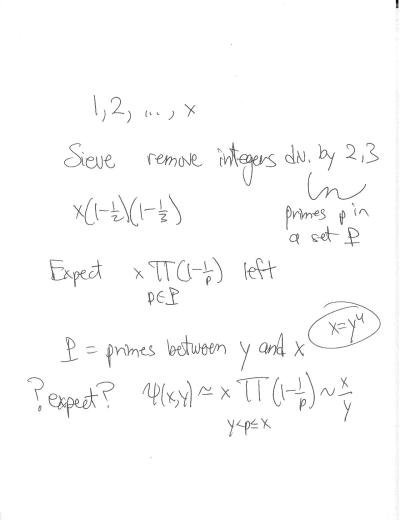 1, 2, ..., x
Sieve remove integers div. by 2,3
x(1-1/2)(1-1/3)
primes p in
a set P
Expect x ∏ (1-1/p) left
p∈P
P = primes between y and x
x=y^u
? expect? Ψ(x,y) ≈ x ∏ (1-1/p) ~ x/y
y<p≤x